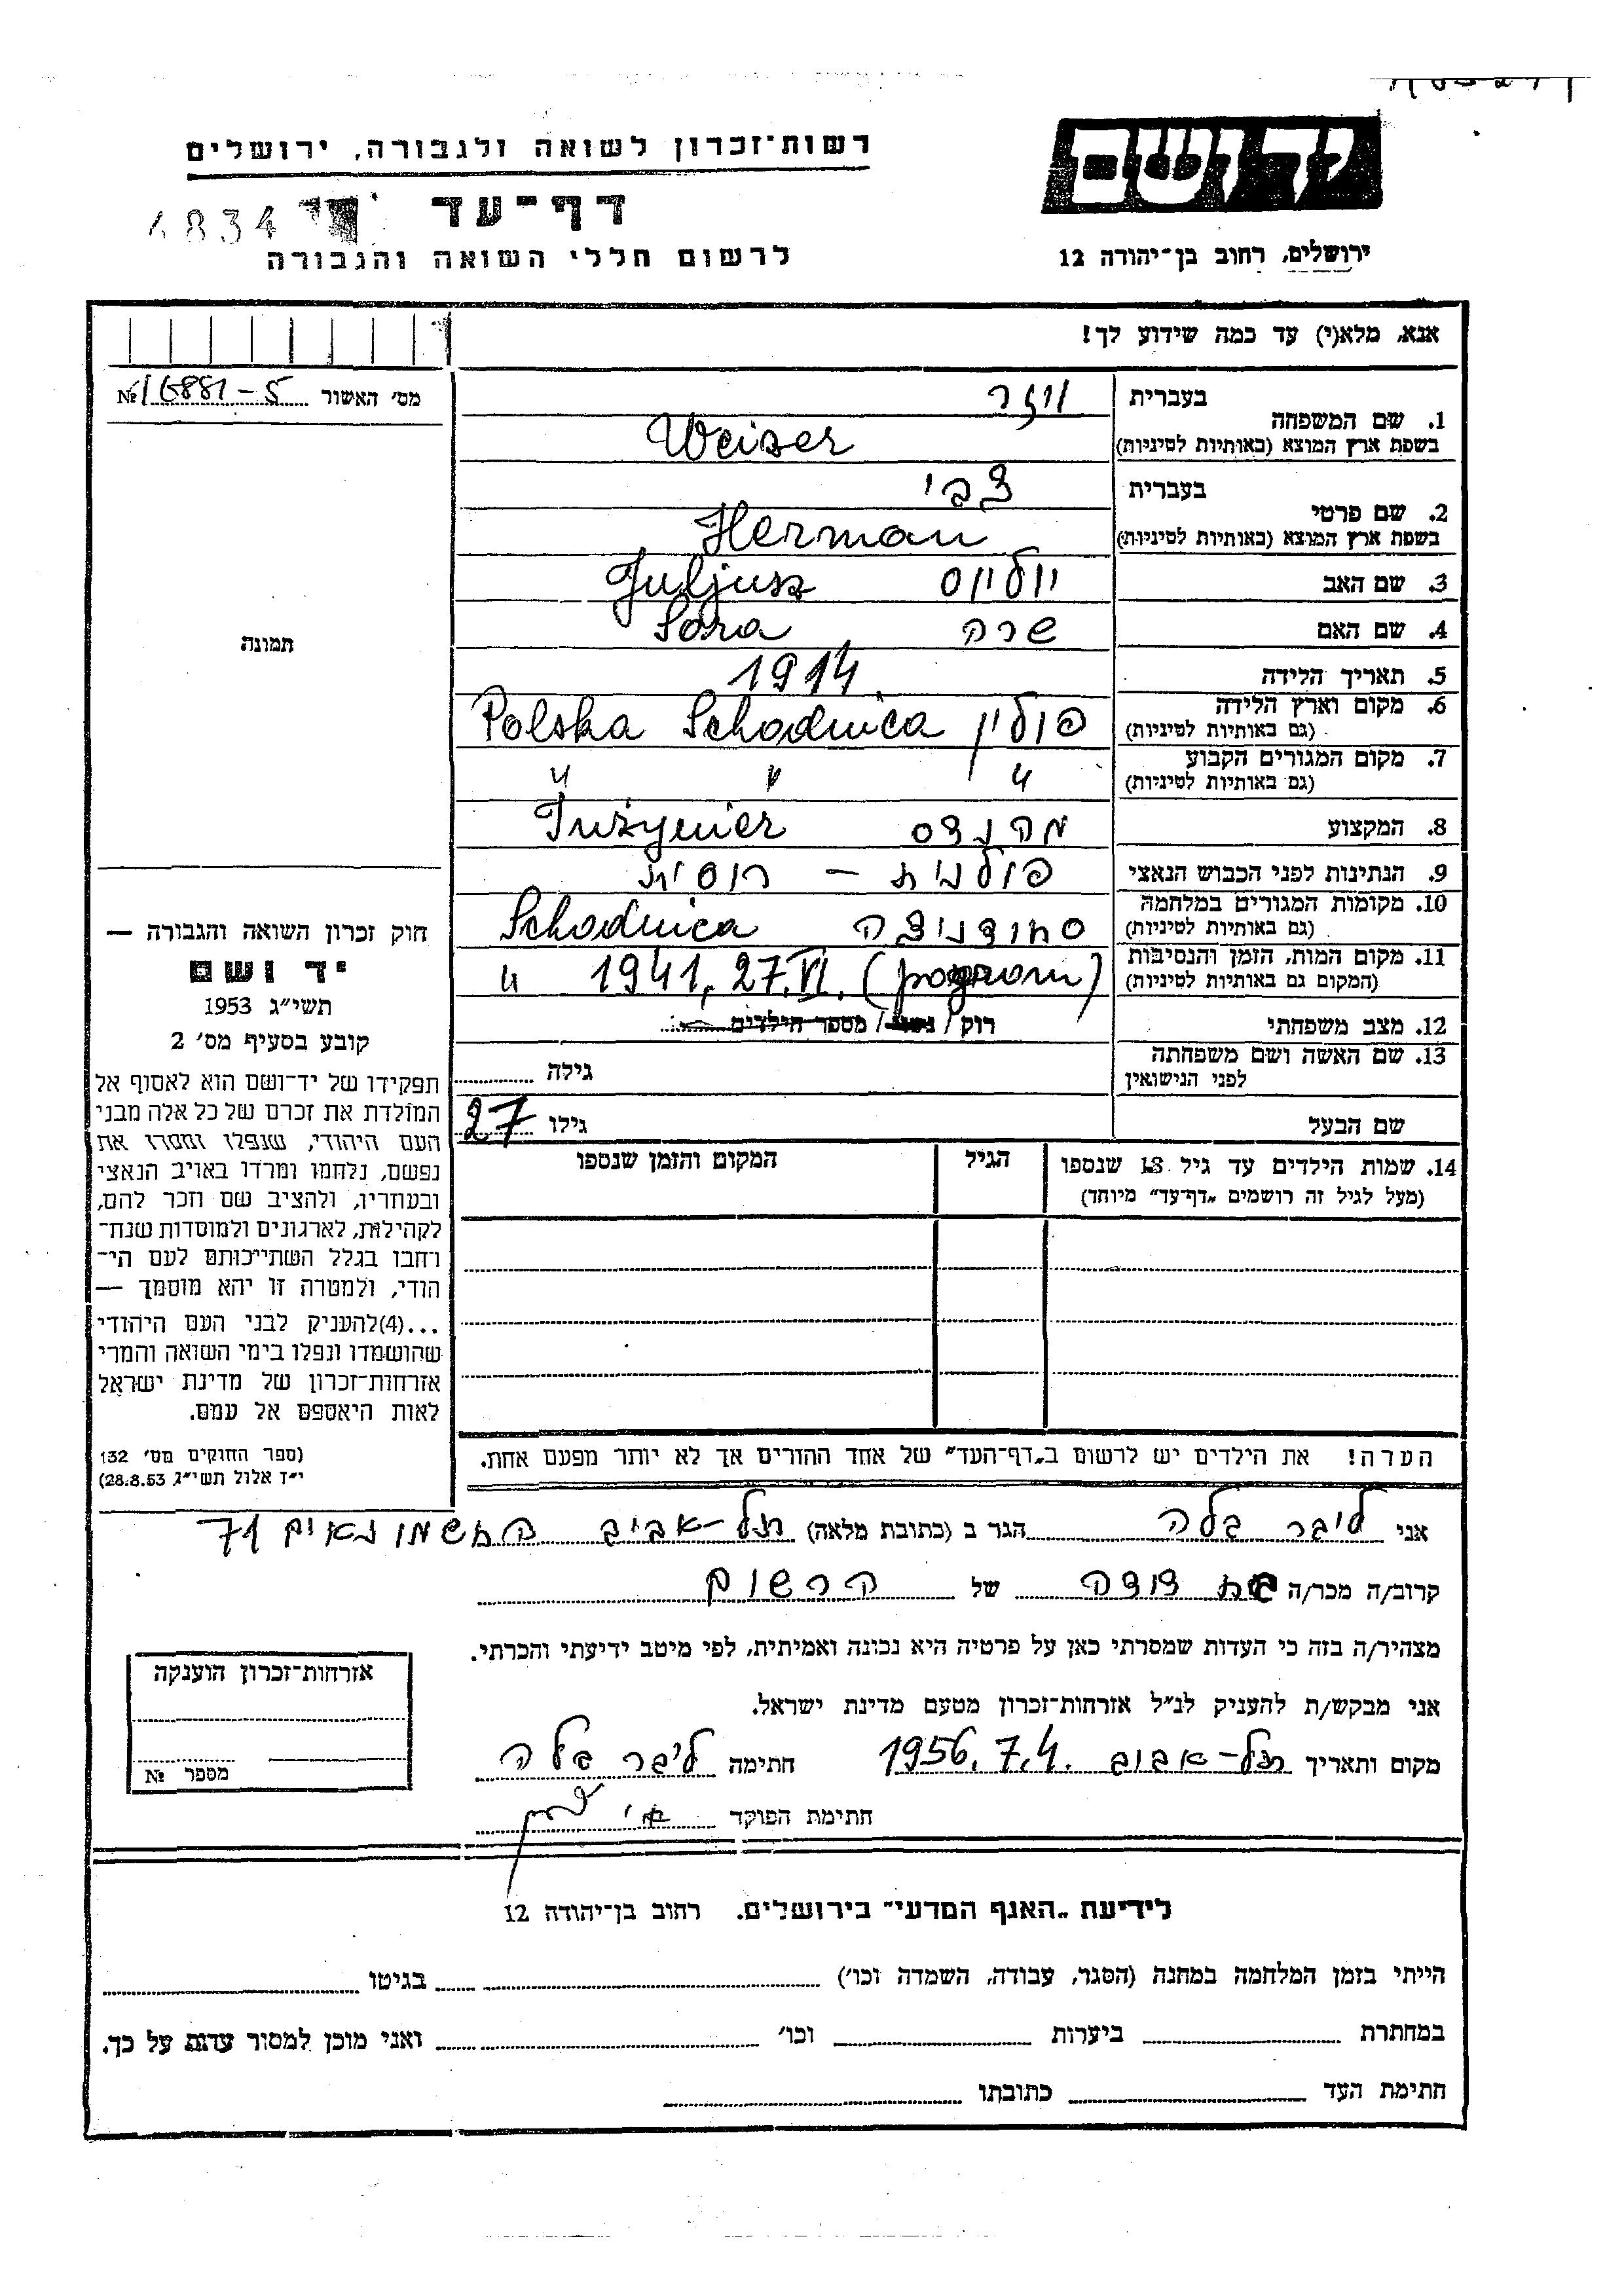 יד ושם
רשות־זכרון לשואה ולגבורה, ירושלים
דף־עד
4834
לרשום חללי השואה והגבורה
ירושלים, רחוב בן־יהודה 12
אנא, מלא(י) עד כמה שידוע לך!
מס' האשור № 16881-5
1. שם המשפחה
בעברית וויזר
בשפת ארץ המוצא (באותיות לטיניות) Weiser
2. שם פרטי
בעברית צבי
בשפת ארץ המוצא (באותיות לטיניות) Herman
3. שם האב יוליוס Juljusz
4. שם האם שרה Sara
5. תאריך הלידה 1914
6. מקום וארץ הלידה (גם באותיות לטיניות) פולין Polska Schodnica
7. מקום המגורים הקבוע (גם באותיות לטיניות) " " "
8. המקצוע מהנדס Inżynier
9. הנתינות לפני הכבוש הנאצי פולנית – רוסית
10. מקומות המגורים במלחמה (גם באותיות לטיניות) סחודניצה Schodnica
11. מקום המות, הזמן והנסיבות (המקום גם באותיות לטיניות) " 1941, 27.VI. (pogrom)
12. מצב משפחתי רוק / נשוי / מספר הילדים
13. שם האשה ושם משפחתה לפני הנישואין גילה
שם הבעל גילו 27
14. שמות הילדים עד גיל 18 שנספו הגיל המקום והזמן שנספו
(מעל לגיל זה רושמים „דף־עד" מיוחד)
הערה! את הילדים יש לרשום ב„דף־העד" של אחד ההורים אך לא יותר מפעם אחת.
תמונה
חוק זכרון השואה והגבורה —
יד ושם
תשי"ג 1953
קובע בסעיף מס' 2
תפקידו של יד־ושם הוא לאסוף אל
המולדת את זכרם של כל אלה מבני
העם היהודי, שנפלו ומסרו את
נפשם, נלחמו ומרדו באויב הנאצי
ובעוזריו, ולהציב שם וזכר להם,
לקהילות, לארגונים ולמוסדות שנח־
רבו בגלל השתייכותם לעם הי־
הודי, ולמטרה זו יהא מוסמך —
...(4)להעניק לבני העם היהודי
שהושמדו ונפלו בימי השואה והמרי
אזרחות־זכרון של מדינת ישראל
לאות היאספם אל עמם.
(ספר החוקים מס' 132
י"ז אלול תשי"ג 28.8.53)
אני ליבר בלה הגר ב (כתובת מלאה) תל-אביב החשמונאים 71
קרוב/ה מכר/ה בת דודה של הרשום
מצהיר/ה בזה כי העדות שמסרתי כאן על פרטיה היא נכונה ואמיתית, לפי מיטב ידיעתי והכרתי.
אני מבקש/ת להעניק לנ"ל אזרחות־זכרון מטעם מדינת ישראל.
מקום ותאריך תל-אביב 1956.7.4. חתימה ליבר בלה
חתימת הפוקד
אזרחות־זכרון הוענקה
מספר №
לידיעת „האגף המדעי" בירושלים. רחוב בן־יהודה 12
הייתי בזמן המלחמה במחנה (הסגר, עבודה, השמדה וכו') בגיטו
במחתרת ביערות וכו' ואני מוכן למסור עדות על כך.
חתימת העד כתובתו